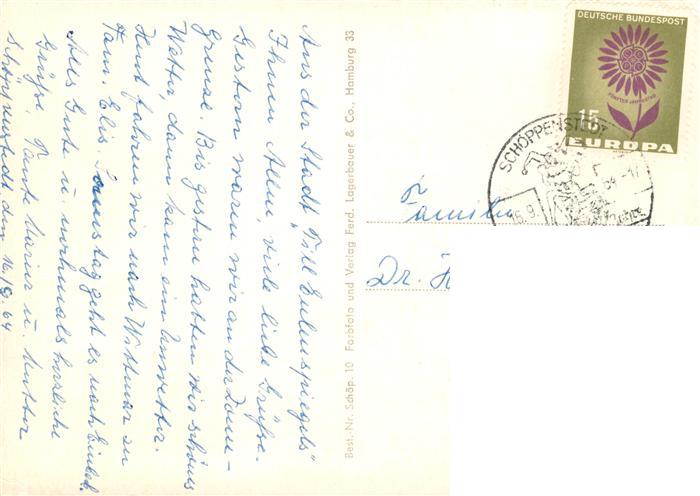 Aus der Stadt "Till Eulenspiegels"
Ihnen Allen, viele liebe Grüße.
Gestern waren wir an der Zonen-
grenze. Bis gestern hatten wir schönes
Wetter, dann kam ein Unwetter.
Heut fahren wir nach Wittmar zu
Fam. Elis. Sonnstag geht es nach Einbek.
Alles Gute u. nochmals herzliche
Grüße Tante Maria u. Mutter
Schöppenstedt, den 16./9. 64
Best.-Nr. Schöp. 10 Farbfoto und Verlag Ferd. Lagerbauer & Co., Hamburg 33
DEUTSCHE BUNDESPOST
15
EUROPA
SCHÖPPENSTEDT
16.9.
64-17
Familie
Dr.